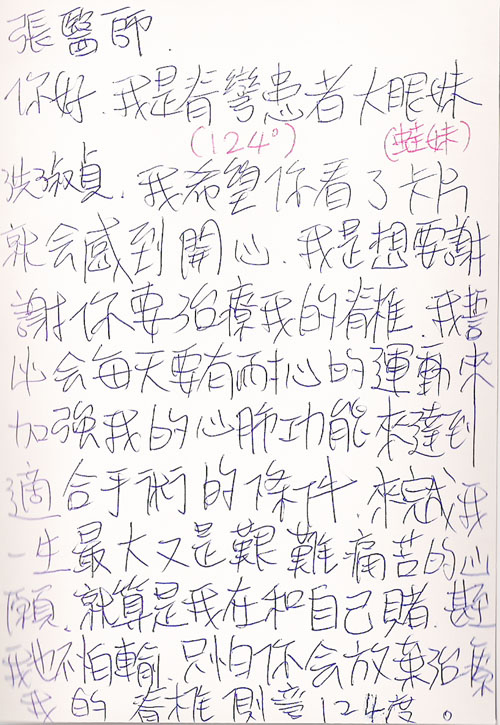 張醫師.
你好.我是脊彎患者大眼妹
(124°) (蛙妹)
洪淑貞.我希望你看了卡片
就会感到開心.我是想要謝
謝你要治療我的脊椎.我誓
必会每天要有耐心的運動來
加強我的心肺功能來達到
適合手術的條件.來完成我
一生最大又是艱難痛苦的心
願.就算是我在和自己賭.
我也不怕輸.只怕你会放棄治療
我的脊椎側彎124度。